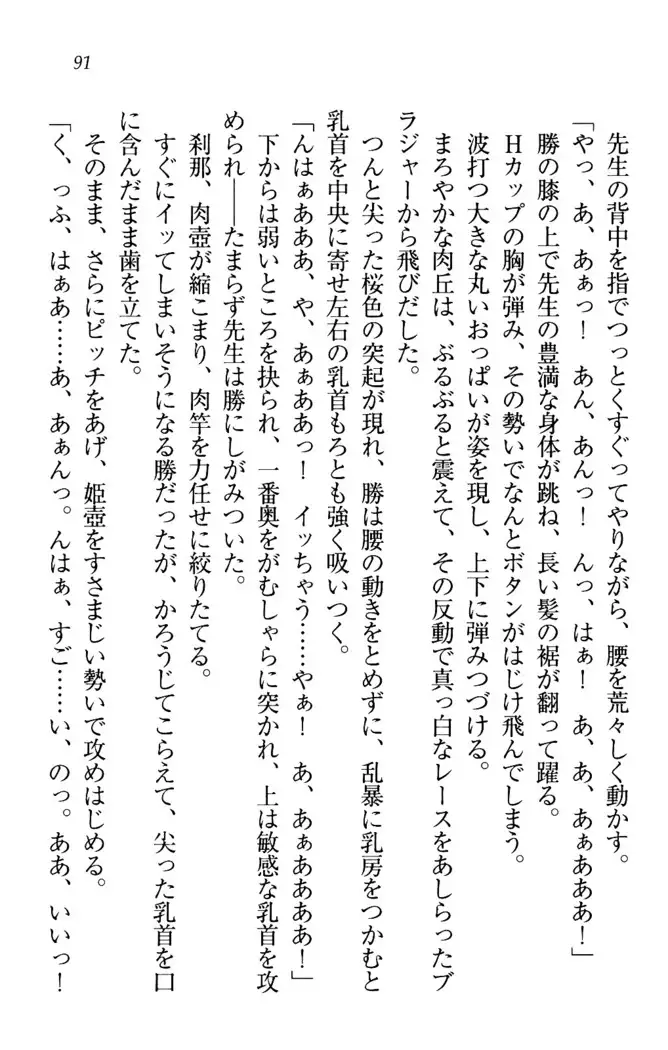 91
先生の背中を指でつっとくすぐってやりながら、腰を荒々しく動かす。
「やっ、あ、あぁっ！　あん、あんっ！　んっ、はぁ！　あ、あ、あぁああ！」
勝の膝の上で先生の豊満な身体が跳ね、長い髪の裾が翻って躍る。
Hカップの胸が弾み、その勢いでなんとボタンがはじけ飛んでしまう。
波打つ大きな丸いおっぱいが姿を現し、上下に弾みつづける。
まろやかな肉丘は、ぶるぶると震えて、その反動で真っ白なレースをあしらったブ
ラジャーから飛びだした。
つんと尖った桜色の突起が現れ、勝は腰の動きをとめずに、乱暴に乳房をつかむと
乳首を中央に寄せ左右の乳首もろとも強く吸いつく。
「んはぁあああ、や、あぁああっ！　イッちゃう……やぁ！　あ、あぁああああ！」
下からは弱いところを抉られ、一番奥をがむしゃらに突かれ、上は敏感な乳首を攻
められ――たまらず先生は勝にしがみついた。
刹那、肉壺が縮こまり、肉竿を力任せに絞りたてる。
すぐにイッてしまいそうになる勝だったが、かろうじてこらえて、尖った乳首を口
に含んだまま歯を立てた。
そのまま、さらにピッチをあげ、姫壺をすさまじい勢いで攻めはじめる。
「く、っふ、はぁあ……あ、あぁんっ。んはぁ、すご……い、のっ。ああ、いいっ！